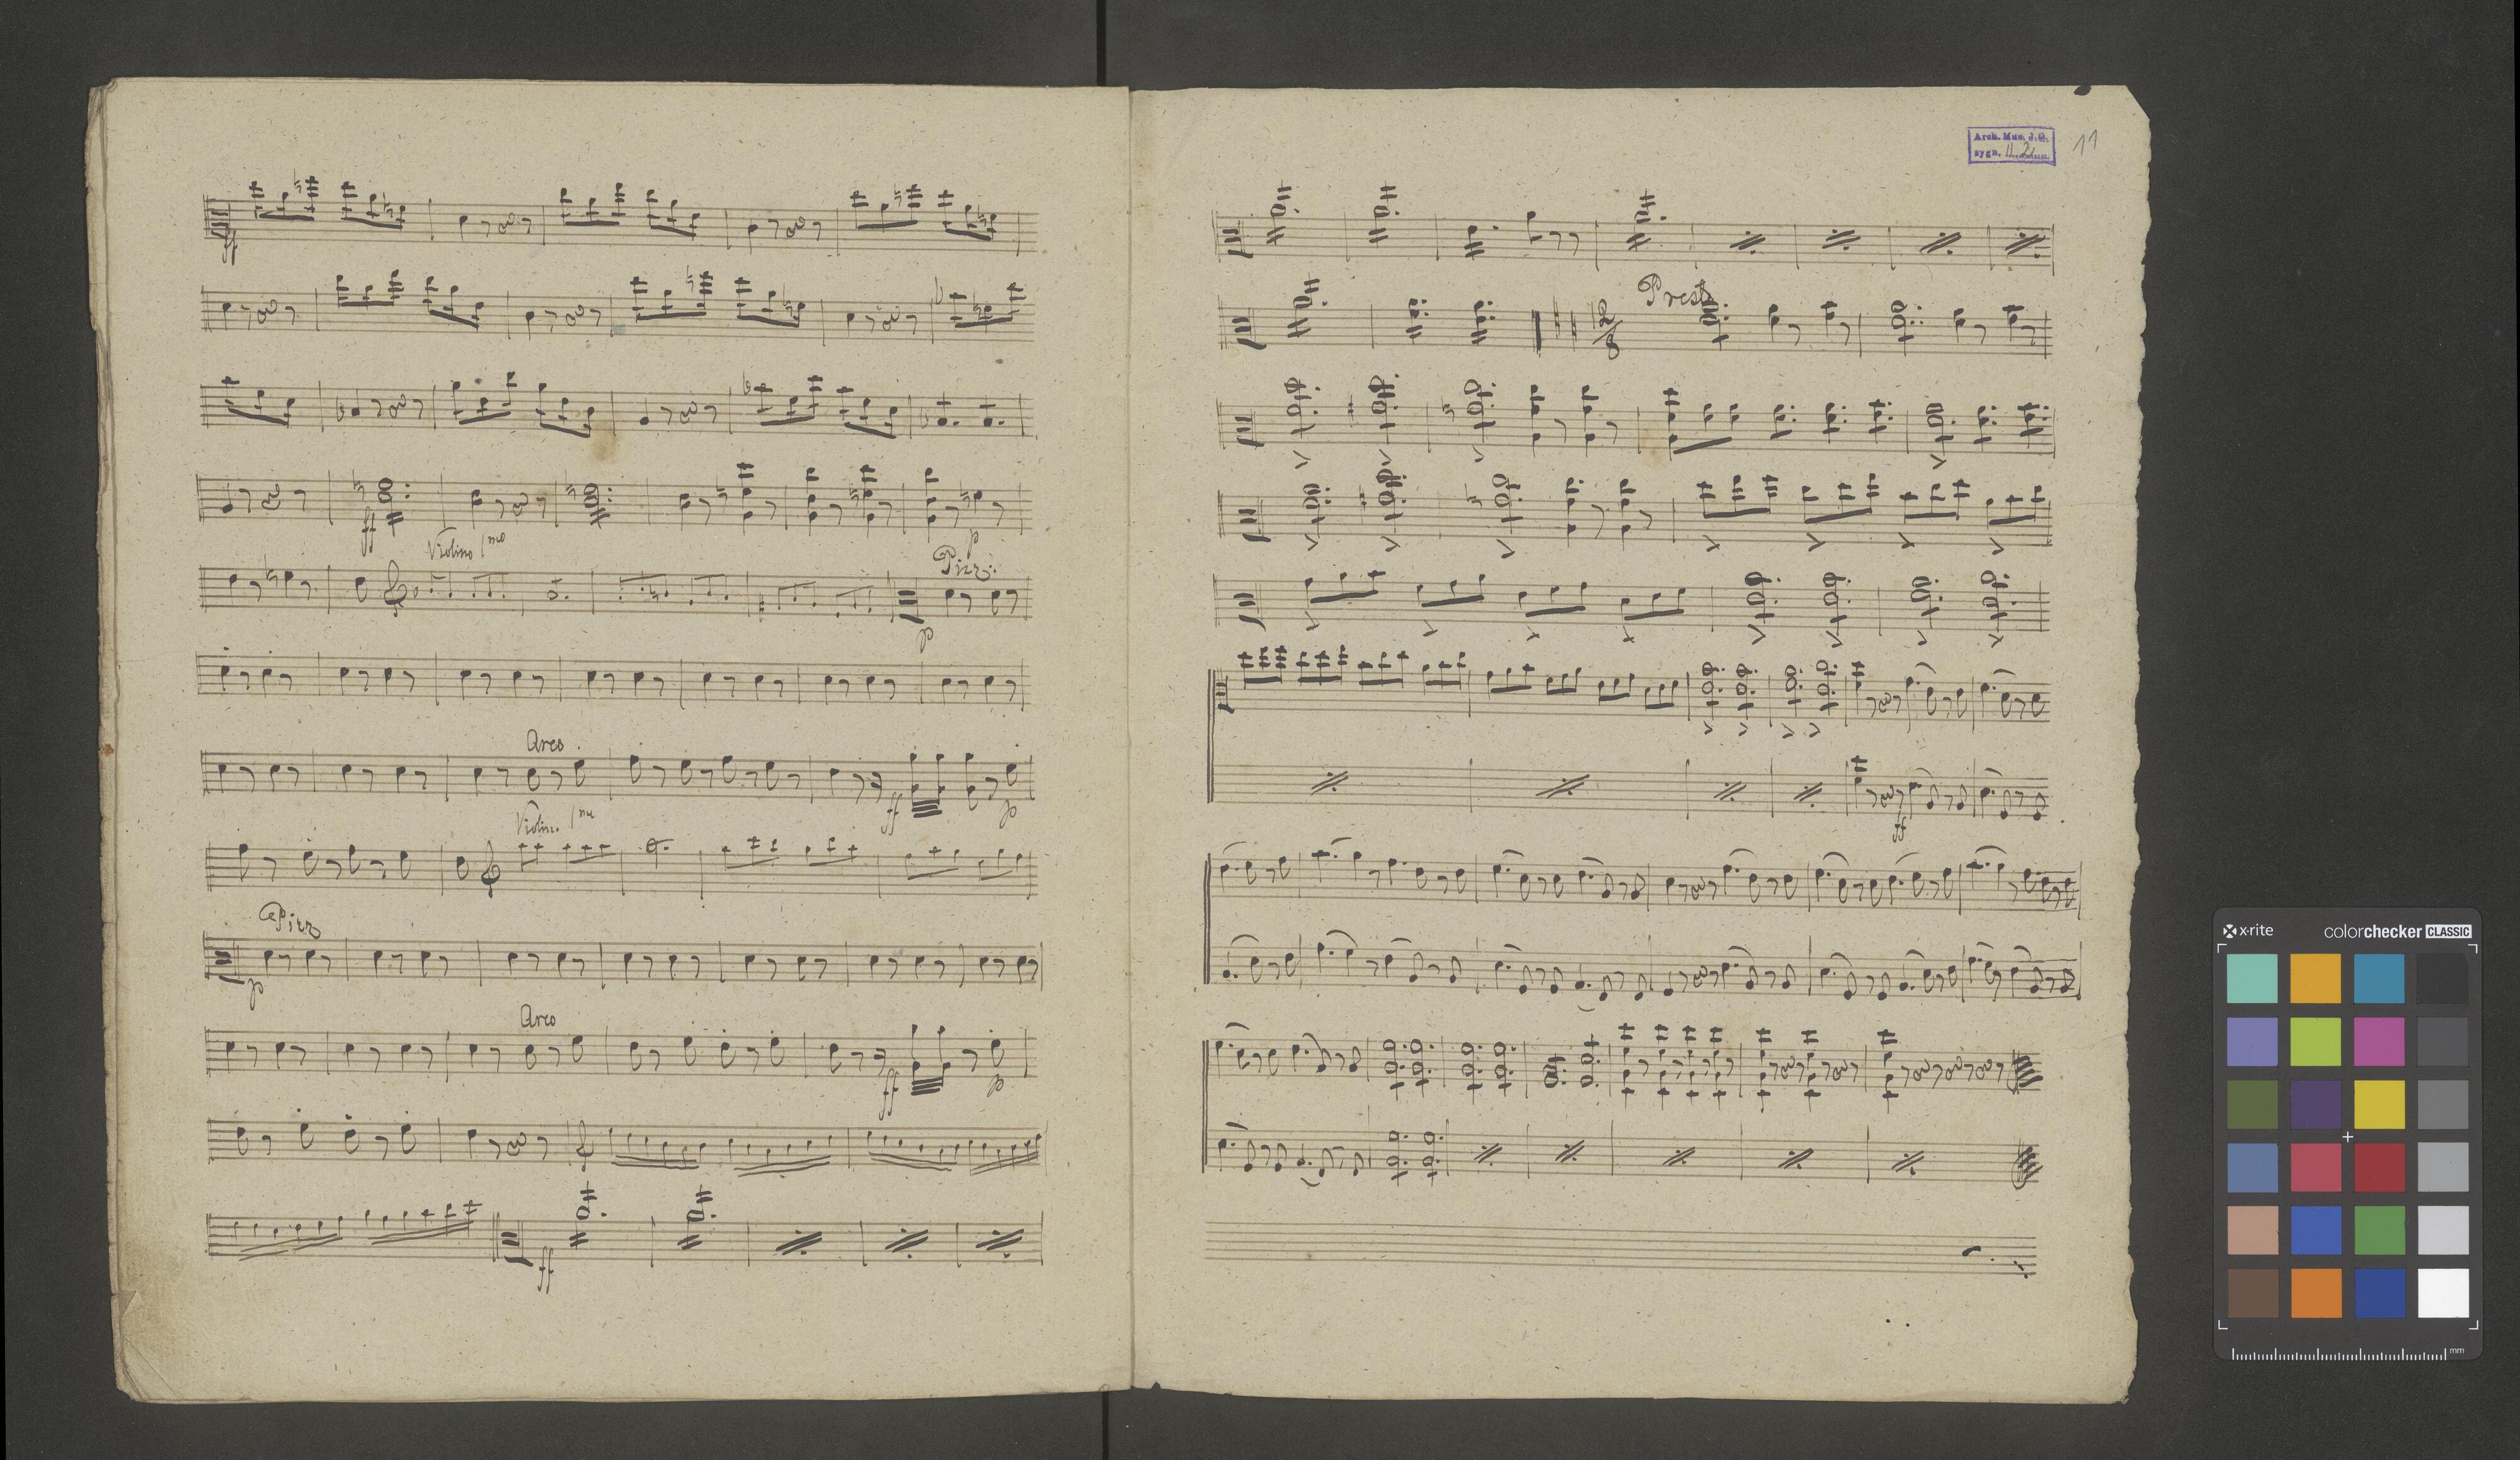 ff
ff
p
Violino 1mo
Pizz:
p
Arco
ff
p
Violino 1mo
Pizz
p
Arco
ff
p
ff
Arch. Muz. J.G.
sygn. II. 2
11
Presto
12
8
ff
x-rite
colorchecker CLASSIC
mm